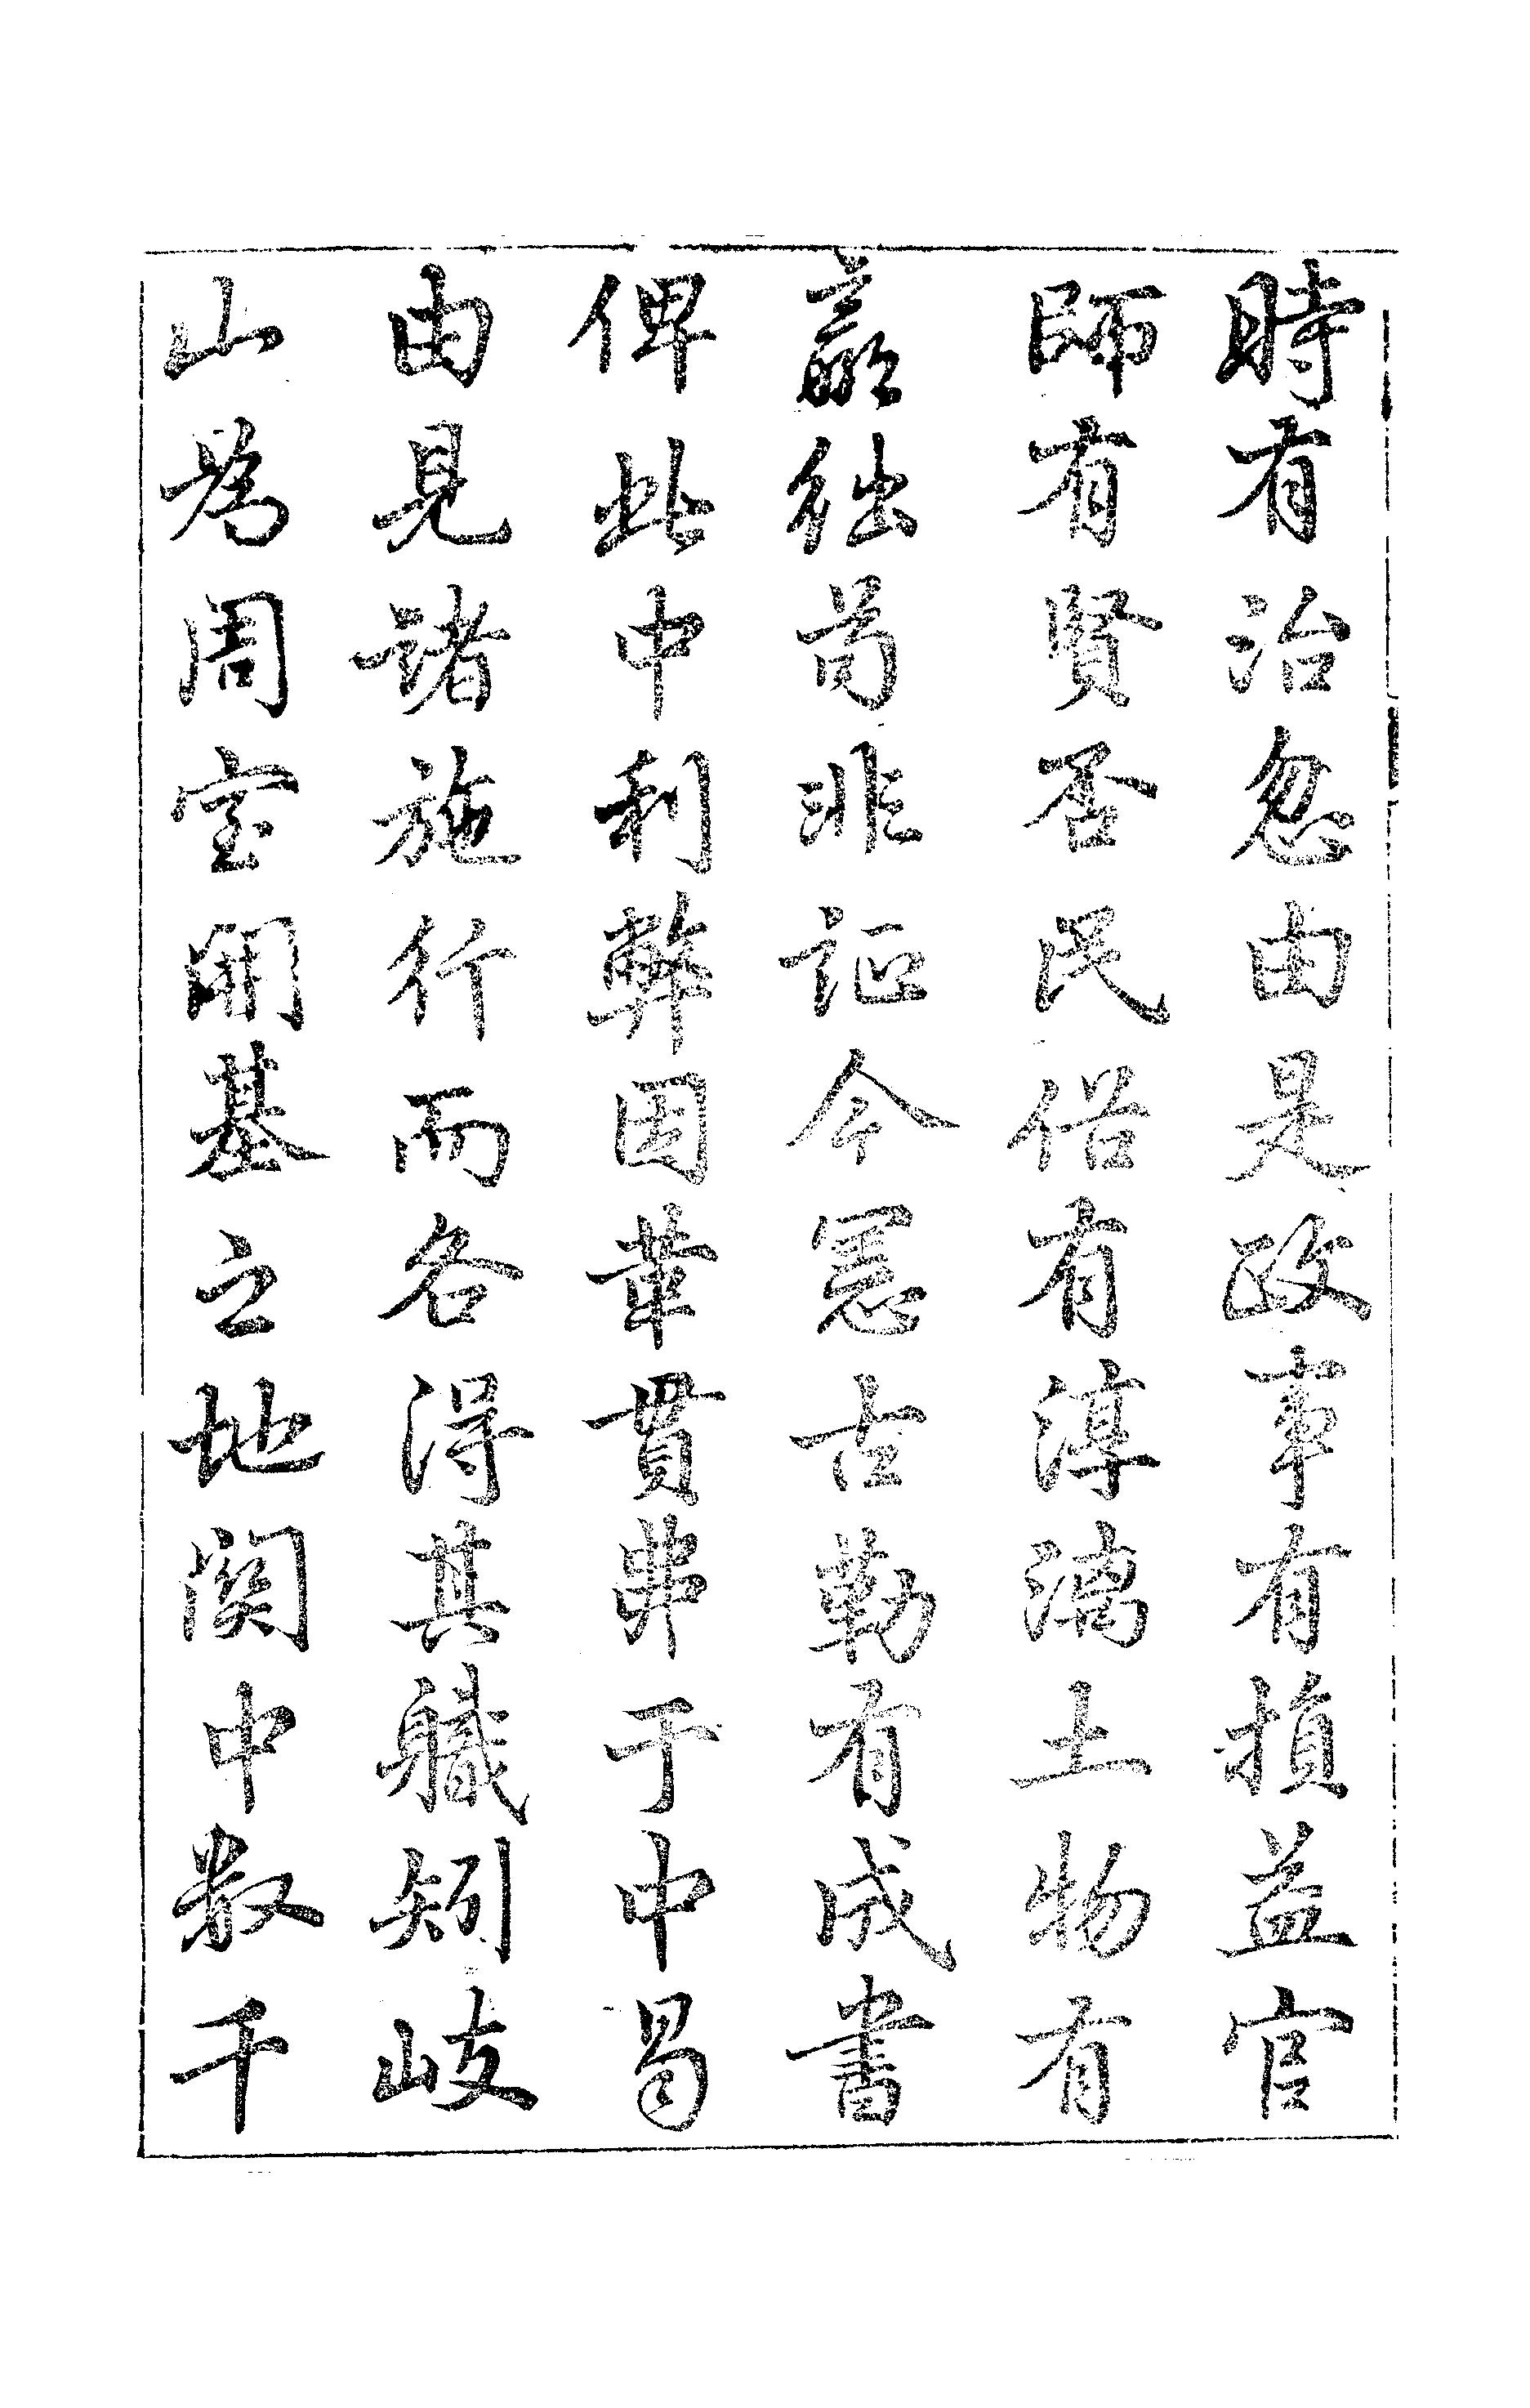 時有治忽由是政事有損益官
師有賢否民俗有淳漓土物有
贏絀苟非証今憲古勒有成書
俾此中利弊因革貫串于中曷
由見諸施行而各得其軄矧岐
山為周室開基之地関中数千